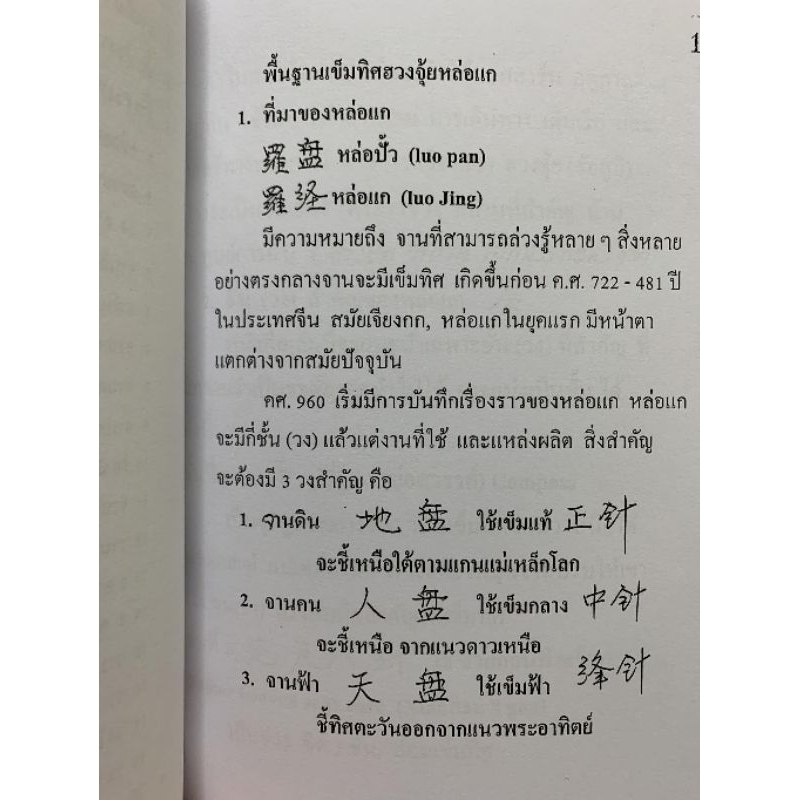 1
พื้นฐานเข็มทิศฮวงจุ้ยหล่อแก
1. ที่มาของหล่อแก
羅盘 หล่อปั้ว (luo pan)
羅经 หล่อแก (luo Jing)
มีความหมายถึง จานที่สามารถล่วงรู้หลาย ๆ สิ่งหลาย
อย่างตรงกลางจานจะมีเข็มทิศ เกิดขึ้นก่อน ค.ศ. 722 - 481 ปี
ในประเทศจีน สมัยเจียงกก, หล่อแกในยุคแรก มีหน้าตา
แตกต่างจากสมัยปัจจุบัน
คศ. 960 เริ่มมีการบันทึกเรื่องราวของหล่อแก หล่อแก
จะมีกี่ชั้น (วง) แล้วแต่งานที่ใช้ และแหล่งผลิต สิ่งสำคัญ
จะต้องมี 3 วงสำคัญ คือ
1. จานดิน 地 盘 ใช้เข็มแท้ 正针
จะชี้เหนือใต้ตามแกนแม่เหล็กโลก
2. จานคน 人 盘 ใช้เข็มกลาง 中针
จะชี้เหนือ จากแนวดาวเหนือ
3. จานฟ้า 天 盘 ใช้เข็มฟ้า 缝针
ชี้ทิศตะวันออกจากแนวพระอาทิตย์